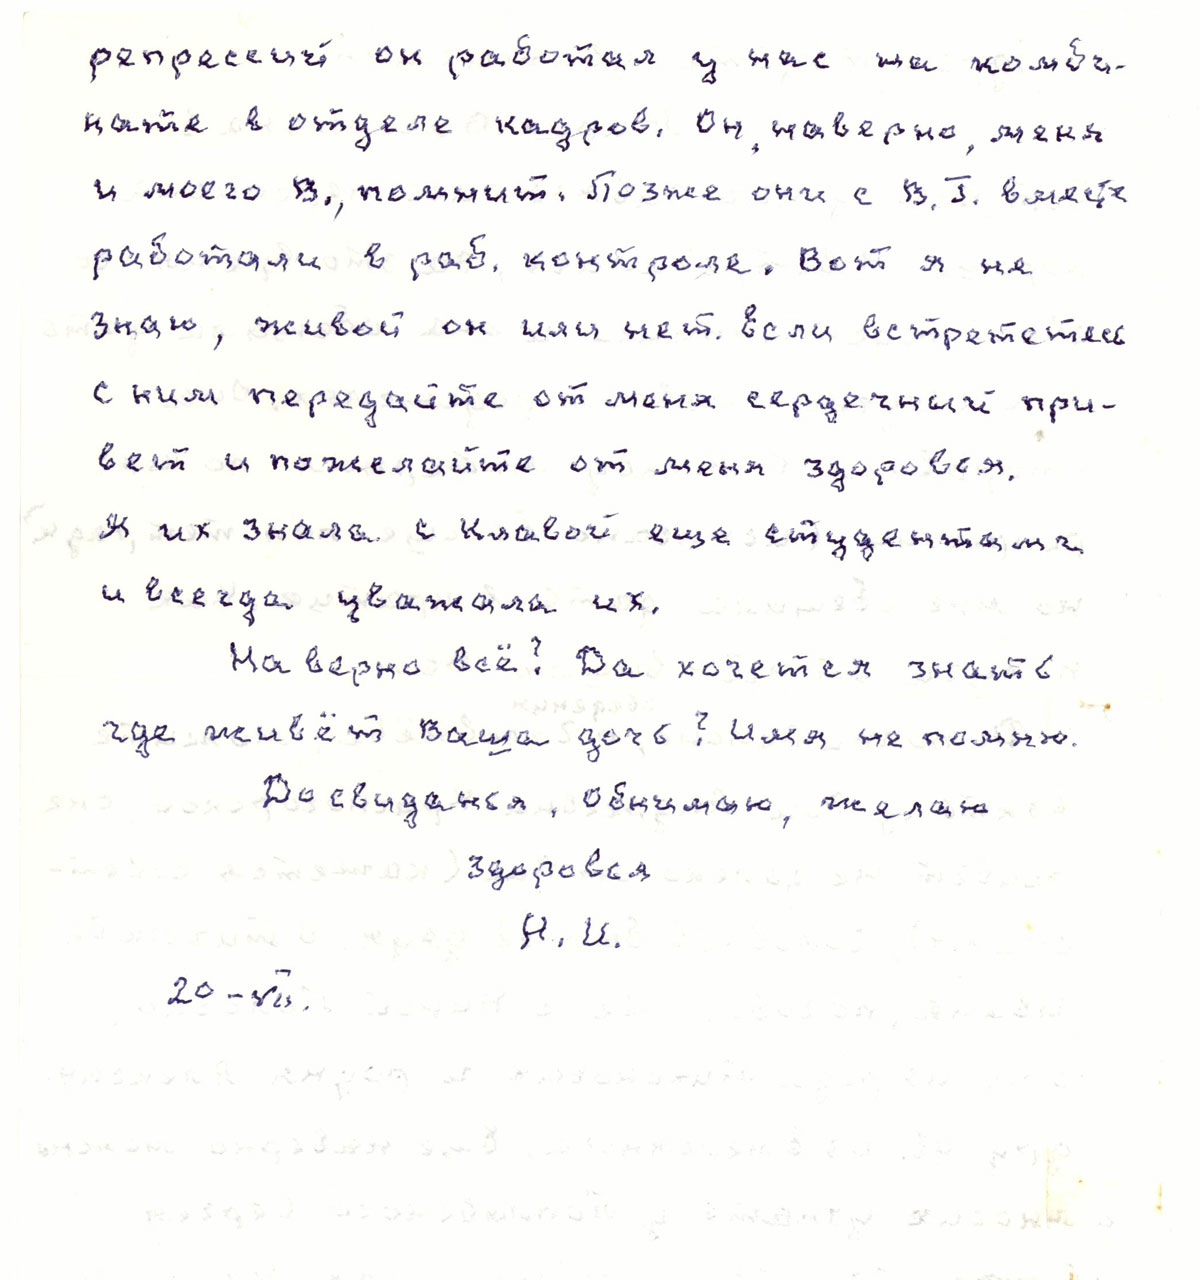 репресеий он работал у нас на комби-
нате в отделе кадров. Он, наверно, меня
и моего В., помнит. Позже они с В.І. вместе
работали в раб. контроле. Вот я не
знаю, живой он или нет. Если встрететесь
с ним передайте от меня сердечный при-
вет и пожелайте от меня здоровья.
Я их знала с Клавой еще студентами
и всегда уважала их.
Наверно всё? Да хочется знать
где живёт Ваша дочь? Имя не помню.
Досвиданья, обнимаю, желаю
здоровья
Н. И.
20-VII.